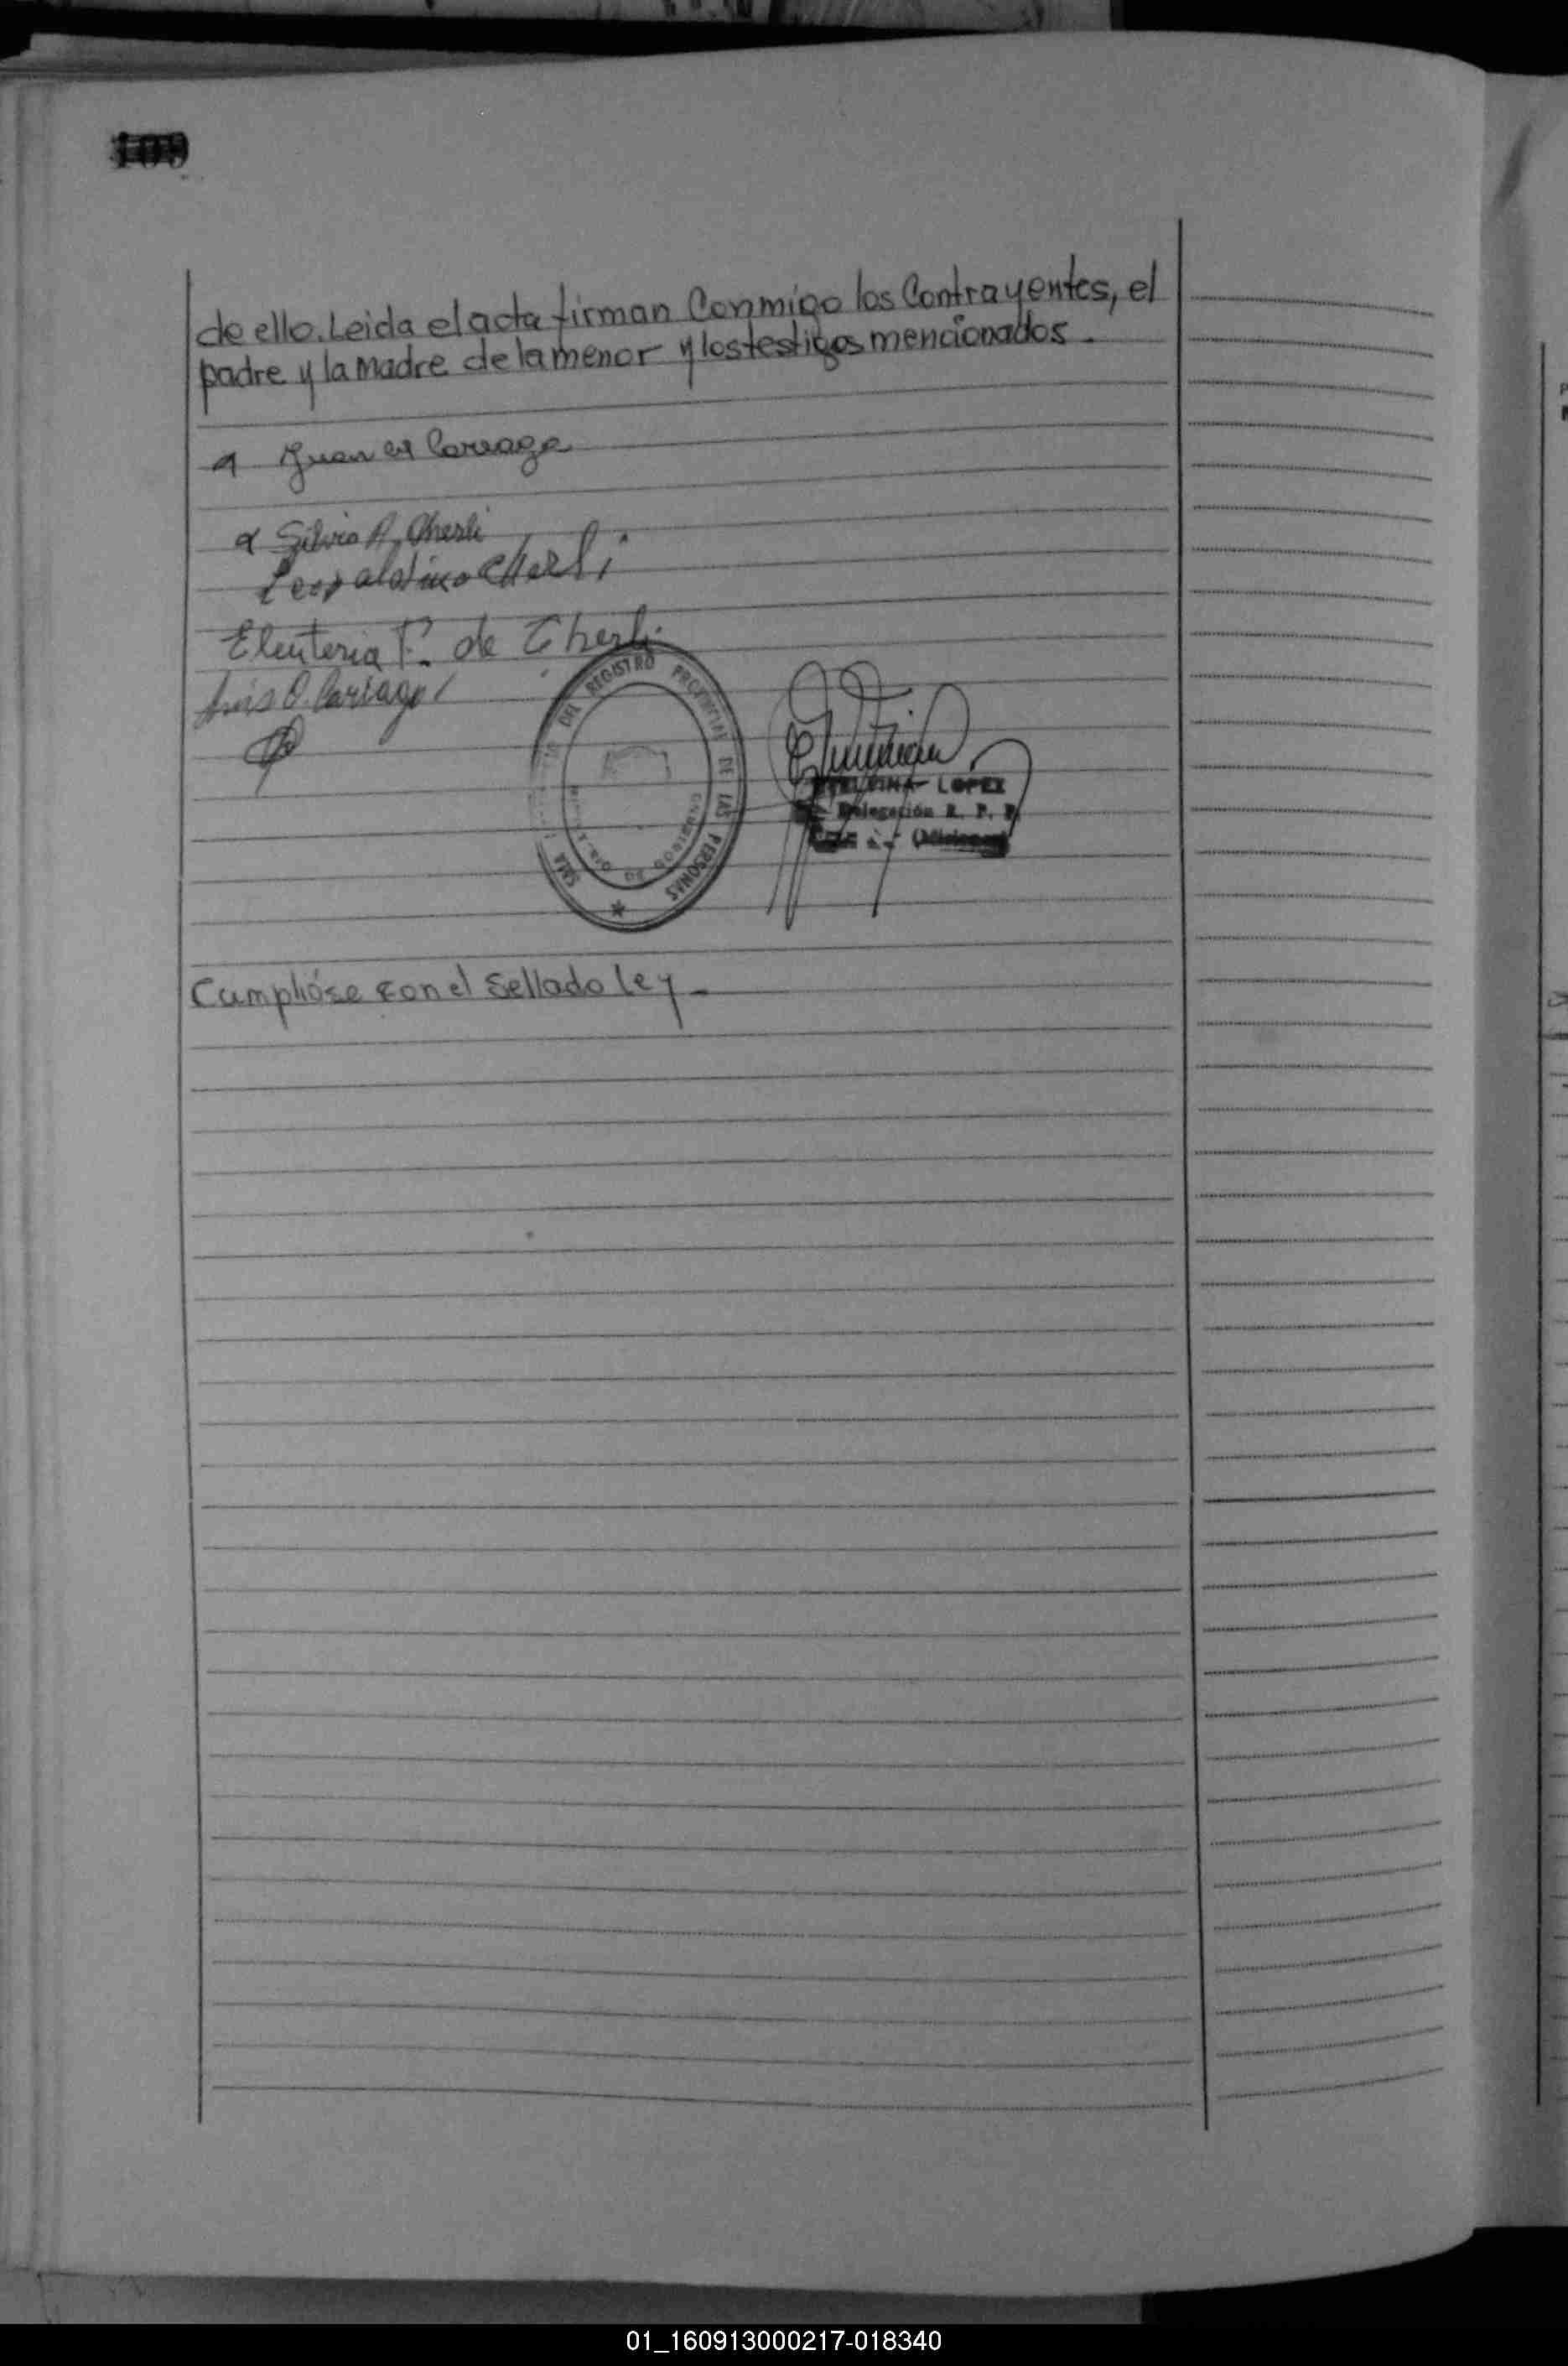 109
de ello. Leida el acta firman Conmigo los Contrayentes, el
padre y la Madre de la menor y los testigos mencionados.
Juan Carreaga
Silvio A. Cherli
Leopaldino Cherli
Eleuteria F. de Cherli
Luis O. Carriago
DEL REGISTRO PROVINCIAL DE LAS PERSONAS
LOPEZ
Delegación R. P. P.
(Misiones)
Cumplióse con el Sellado Ley.-
01_160913000217-018340